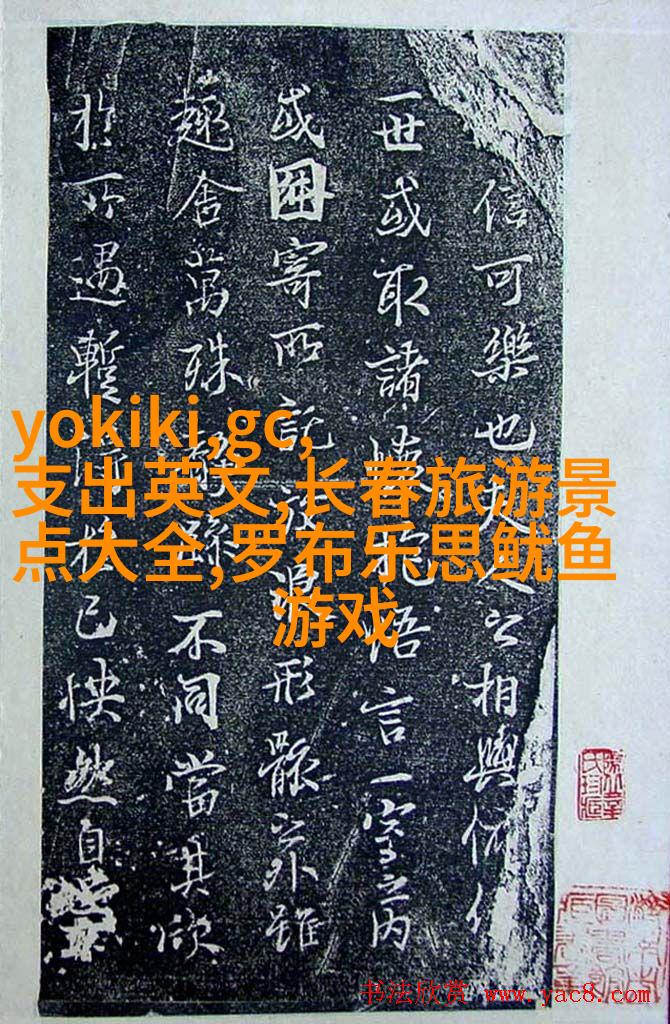 信可樂也夫人之相與俯仰
一世或取諸懷抱悟言一室之內
或因寄所託放浪形骸之外雖
趣舍萬殊靜躁不同當其欣
於所遇暫得於己快然自
yokiki,gc,
支出英文,长春旅游景
点大全,罗布乐思鱿鱼
游戏
书法欣赏 www.yac8.com